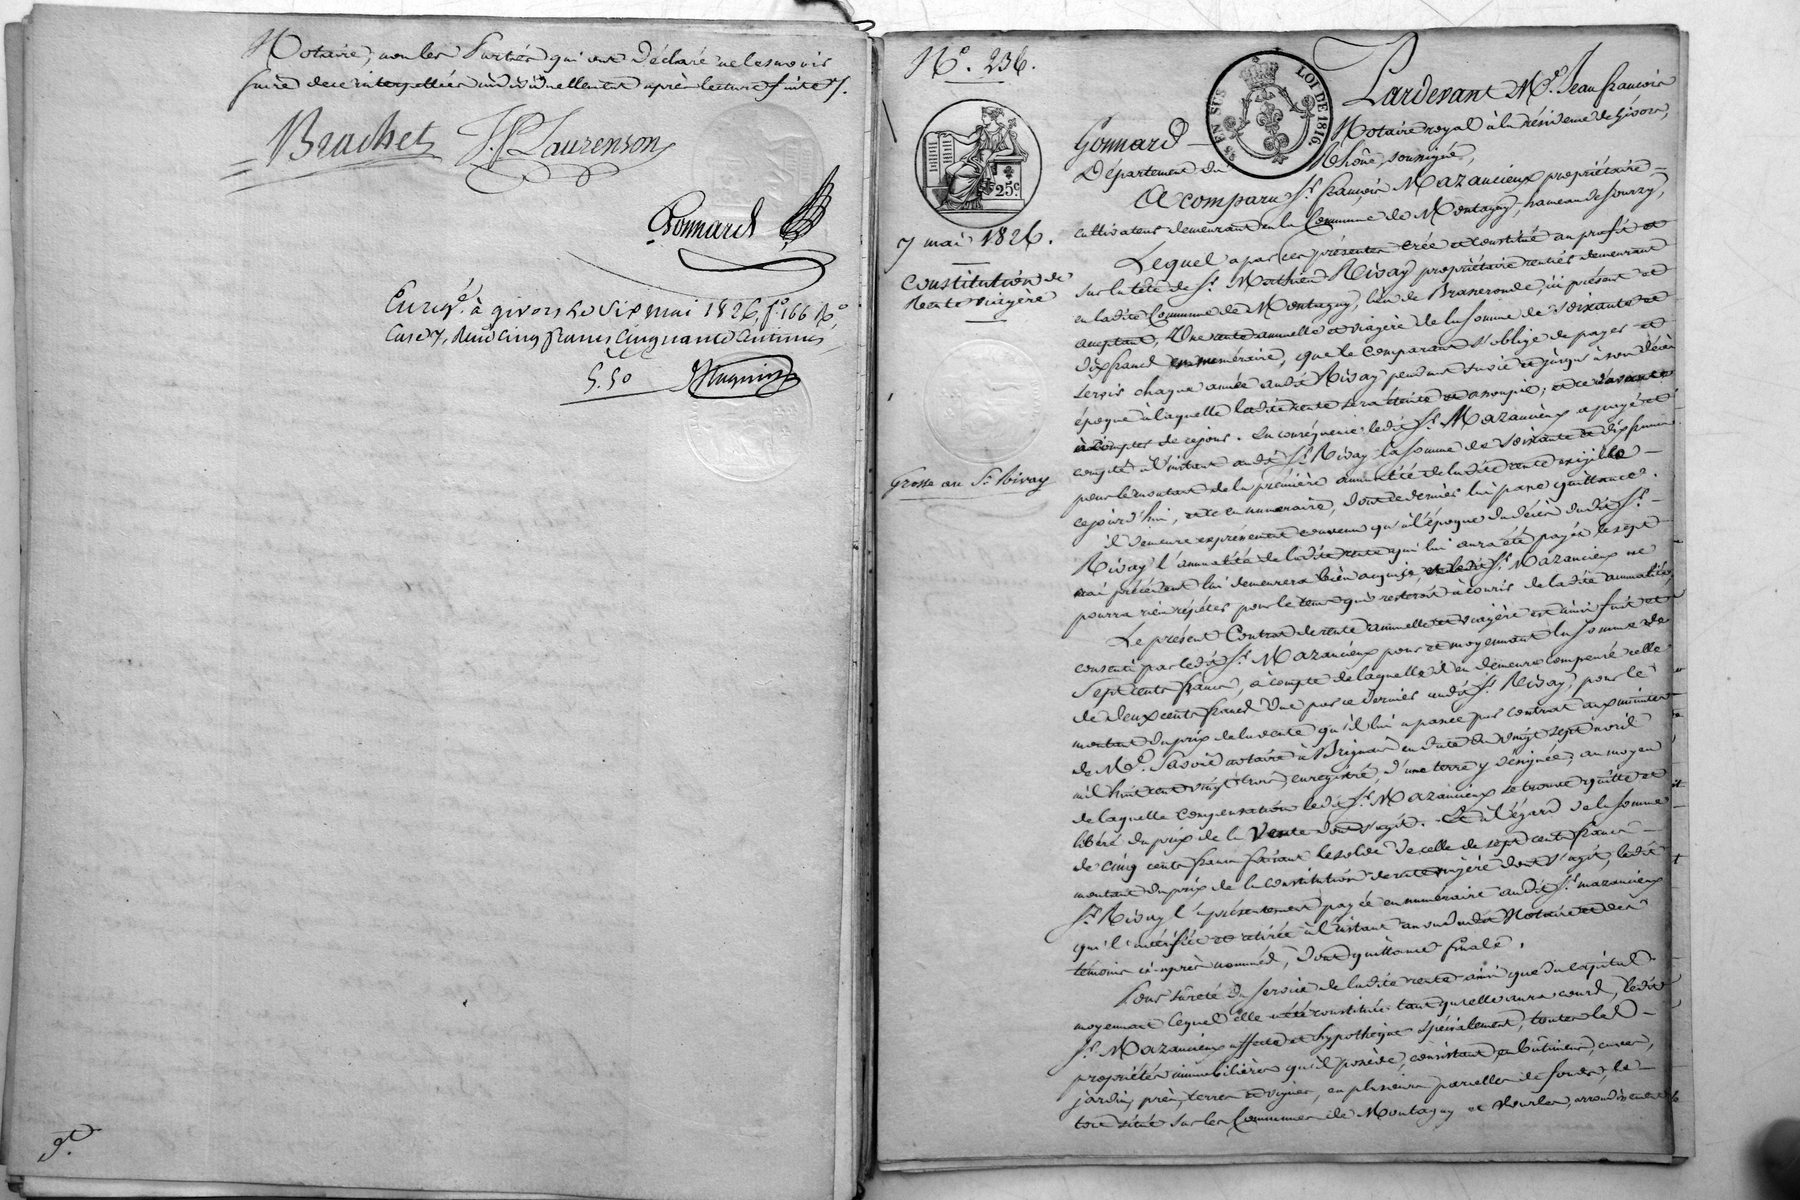 Notaire, non les Parties qui ont déclaré ne le savoir
faire de ce interpellées individuellement après lecture faite ./.
Brachet J.P. Laurenson
Gonnard
Enreg.é à givors le dix mai 1826, f.o 166 R.o
Case 7, Reçu cinq francs cinquante centimes
5.50
gt.
N.o 236.
EN SUS
LOI DE 1816
25c
7 mai 1826.
Constitution de
Rente viagère
Grosse au Sr. Rivay
Pardevant M.e Jean françois
Gonnard Notaire royal à la résidence de Givors,
Département du Rhône, soussigné,
A comparu Sr. françois Mazancieux propriétaire
cultivateur demeurant en la Commune de Montagny, hameau de Sourzy,
Lequel a par ces présentes créé et constitué au profit et
sur la tête de Sr. Mathieu Rivay propriétaire rentier demeurant
en ladite Commune de Montagny, lieu de Brasseronde, ici présent et
acceptant, Une rente annuelle et viagère de la somme de soixante et
dix francs en numéraire, que le comparant s'oblige de payer et
servir chaque année audit Rivay pendant sa vie et jusqu'à son décès
époque à laquelle ladite rente sera éteinte et amortie, et ce d'avance
à compter de ce jour. En conséquence ledit Sr. Mazancieux a payé et
compté à l'instant audit Sr. Rivay la somme de soixante et dix francs
pour le montant de la première annuité de ladite rente exigible
cejourd'hui, et ce en numéraire, dont ce dernier lui passe quittance.
il demeure expressément convenu qu'à l'époque du décès dudit Sr.
Rivay l'annuité de ladite rente qui lui aura été payée le sept
mai précédent lui demeurera bien acquise, et ledit Sr. Mazancieux ne
pourra rien répéter pour le tems qui resteroit à courir de ladite annuité,
Le présent Contrat de rente annuelle et viagère est ainsi fait et
consenti par ledit Sr. Mazancieux pour et moyennant la somme de
Sept cents francs, à compte de laquelle il en demeure compensé celle
de deux cents francs due par ce dernier audit Sr. Rivay, pour le
montant du prix de la vente qu'il lui a passée par contrat aux minutes
de M.e notaire à Brignais en date du vingt sept avril
mil huit cent vingt trois, enregistré, d'une terre y désignée, au moyen
de laquelle compensation ledit Sr. Mazancieux se trouve quitte et
libéré du prix de la Vente dont s'agit. Et à l'égard de la somme
de cinq cents francs faisant le solde de celle de sept cents francs
montant du prix de la constitution de rente viagère dont s'agit, ledit
Sr. Rivay l'a présentement payée en numéraire audit Sr. Mazancieux
qui l'a vérifiée et retirée à l'instant au vu dudit Notaire et des
témoins ci-après nommés, dont quittance finale.
Pour sûreté du service de ladite rente ainsi que du capital
moyennant lequel elle a été constituée tant qu'elle aura cours, ledit
Sr. Mazancieux affecte et hypothèque spécialement, toutes les
propriétés immobilières qu'il possède, consistant, en bâtimens, cuves,
jardin, prés, terres et vignes, en plusieurs parcelles de fonds, le
tout situé sur les Communes de Montagny et Vourles, arrondissement